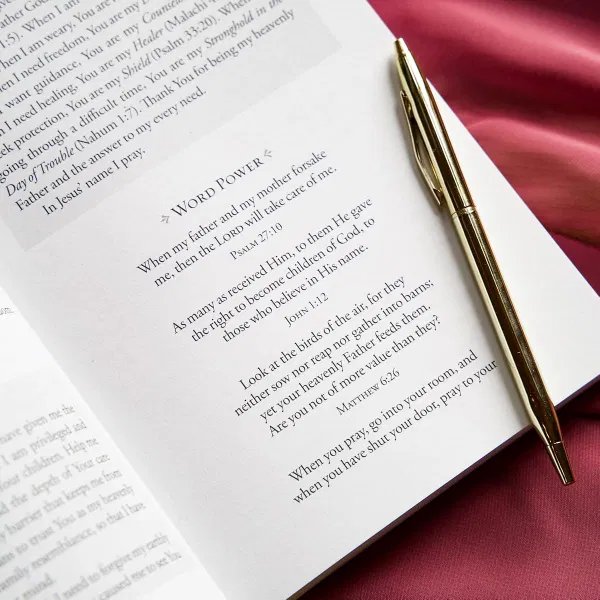 When I am
1:5). When I am
When I am weary, You are my
When I need freedom, You are my
want guidance, You are my Counselor
I need healing, You are my Healer (Malachi
seek protection, You are my Shield (Psalm 33:20). When
going through a difficult time, You are my Stronghold in the
Day of Trouble (Nahum 1:7). Thank You for being my heavenly
Father and the answer to my every need.
In Jesus' name I pray.
WORD POWER
When my father and my mother forsake
me, then the LORD will take care of me.
PSALM 27:10
As many as received Him, to them He gave
the right to become children of God, to
those who believe in His name.
JOHN 1:12
Look at the birds of the air, for they
neither sow nor reap nor gather into barns;
yet your heavenly Father feeds them.
Are you not of more value than they?
MATTHEW 6:26
When you pray, go into your room, and
when you have shut your door, pray to your
have given me the
I am privileged and
your children. Help me
the depth of Your care
barrier that keeps me from
to trust You as my heavenly
family resemblance, so that I have
mind.
I need to forgive my earthly
caused me to see You